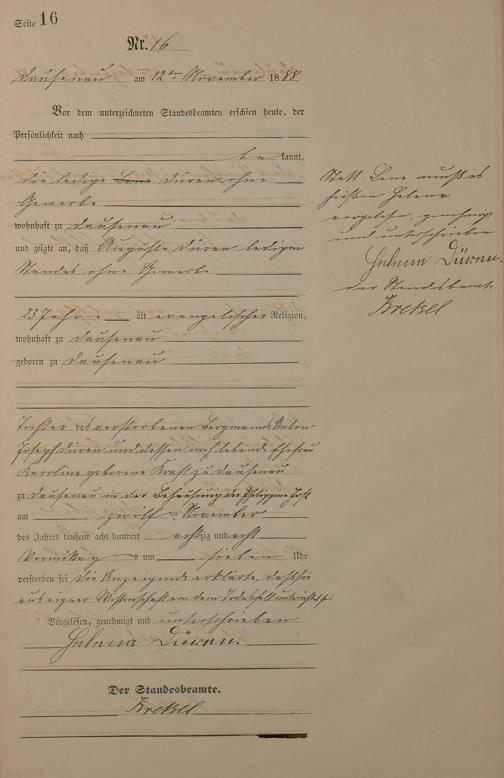 Seite 16
Nr. 16
Dausenau am 12ten November 1888
Vor dem unterzeichneten Standesbeamten erschien heute, der
Persönlichkeit nach
be kannt,
die ledige Lene Düren ohne
Gewerbe
wohnhaft zu Dausenau
und zeigte an, daß Auguste Düren ledigen
Standes ohne Gewerbe
23 Jahre alt evangelischer Religion,
wohnhaft zu Dausenau
geboren zu Dausenau
Tochter des verstorbenen Bergmanns Anton
Joseph Düren und dessen noch lebende Ehefrau
Karoline geborene Kraft zu Dausenau
zu Dausenau in der Behausung des Philippus Jost
am zwölften November
des Jahres tausend acht hundert achtzig und acht
Vormittags um sieben Uhr
verstorben sei die Anzeigende erklärte, daß sie
aus eigner Wissenschaft von dem Todesfall unterrichtet sei.
Vorgelesen, genehmigt und unterschrieben
Helena Düren.
Der Standesbeamte.
Krekel
Statt Lene muß es
heißen Helena
vorgelesen, genehmigt
und unterschrieben
Helena Düren.
der Standesbeamte
Krekel